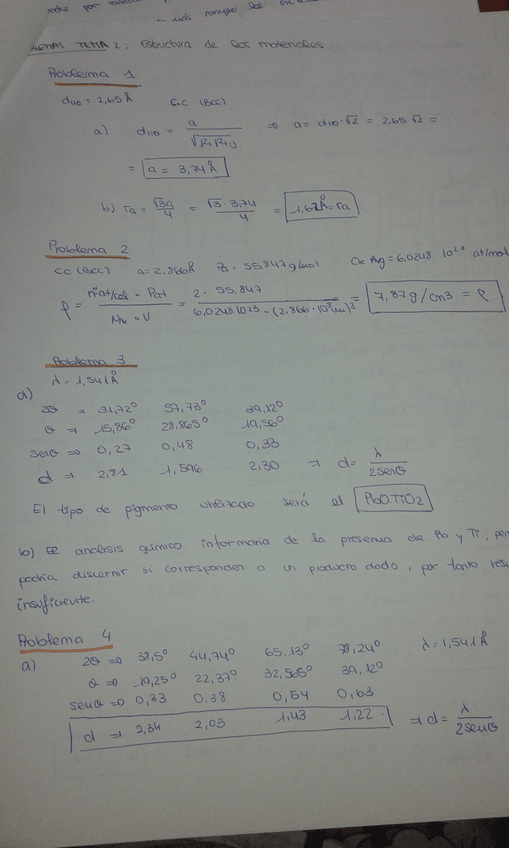 TEMA 2: Estructura de los materiales
Problema 1
d110 = 2,65 Å C.C (BCC)
a) d110 = a / √(1²+1²+0) => a = d110·√2 = 2,65·√2 =
= a = 3,74 Å
b) ra = √3a/4 = √3·3,74/4 = 1,62 Å = ra
Problema 2
CC (BCC) a = 2,866 Å Pa = 55,847 g/mol Cte Avg = 6,0248 10²³ at/mol
ρ = nºat/cel · Pat / NAv · V = 2 · 55,847 / 6,0248·10²³ · (2,866·10⁻⁸cm)³ = 7,87 g/cm3 = ρ
Problema 3
λ = 1,541 Å
a)
2θ => 31,72º 57,73º 39,12º
θ => 15,86º 28,865º 19,56º
senθ => 0,27 0,48 0,33
d => 2,81 1,596 2,30 => d = λ / 2senθ
El tipo de pigmento utilizado será el PbOTiO2
b) El analisis químico informaria de la presencia de Pb y Ti,
podría discernir si corresponden a un producto dado, por tanto
insuficiente.
Problema 4
a) 2θ => 38,5º 44,74º 65,13º 78,24º λ = 1,541 Å
θ => 19,25º 22,37º 32,565º 39,12º
senθ => 0,33 0.38 0,54 0,63
d => 2,34 2,03 1,43 1,22 => d = λ / 2senθ